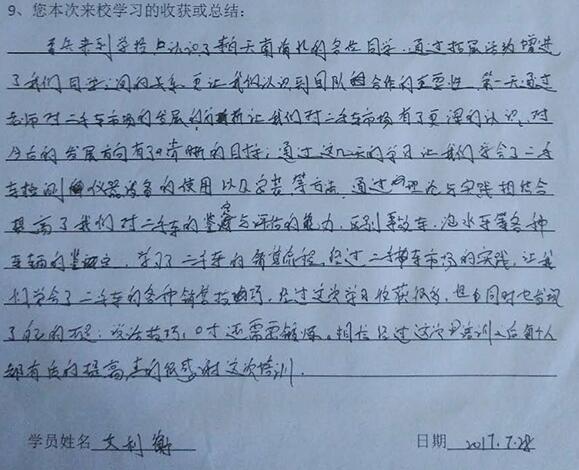 9、您本次来校学习的收获或总结:
首先来到学校认识了来自天南海北的各位同学,通过拓展活动增进
了我们同学之间的关系,更让我们认识到团队合作的重要性。第一天通过
老师对二手车市场的发展的分析让我们对二手车市场有了更深的认识,对
今后的发展方向有了清晰的目标;通过这几天的学习让我们学会了二手
车检测仪器设备的使用以及安装等方法,通过理论与实践相结合
提高了我们对二手车的鉴定与评估的能力,区别事故车,泡水车等各种
车辆的鉴定,学习了二手车的销售流程,经过二手车市场的实践,让我
们学会了二手车的各种销售技巧,经过这次学习收获很多,但同时也发现
了自己的不足:说话技巧,口才还需要锻炼。相信经过这次培训之后每个人
都有质的提高,真的很感谢这次培训.
学员姓名 文利衡 日期 2017.7.28